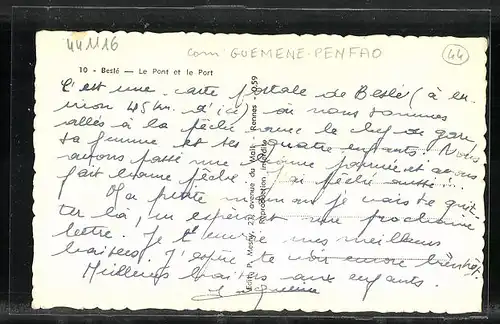 441116
com GUEMENE-PENFAO
44
10 - Beslé — Le Pont et le Port
C'est une carte postale de Beslé (à en-
viron 45 km. d'ici) où nous sommes
allés à la pêche avec le chef de gare
sa femme et ses quatre enfants. Nous
avons passé une bonne journée et avons
fait bonne pêche. J'ai pêché aussi !!!
Ma petite maman je vais te quit-
ter là, en espérant une prochaine
lettre. Je t'envoie mes meilleurs
baisers. J'espère te voir encore bientôt.
Meilleurs baisers aux enfants.
Jacqueline
Edit. P. Marzin, 27, avenue du Mail - Rennes - 1-59
Reproduction interdite